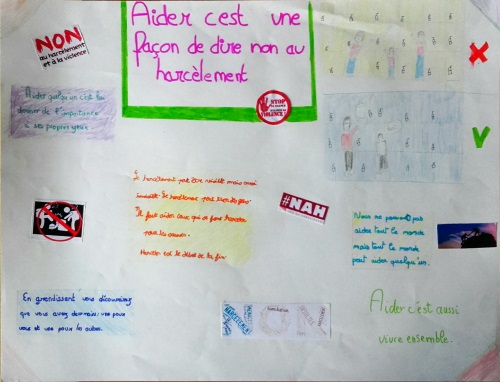 NON
au harcèlement
et à la violence!
Aider c'est une
façon de dire non au
harcèlement
STOP
VIOLENCE!
Aider quelqu'un c'est lui
donner de l'importance
à ses propres yeux
Le harcèlement peut être visible mais aussi
invisible. Le harcèlement peut tuer des gens.
Il faut aider ceux qui se font harceler
pour les sauver.
Harceler est le début de la fin
#NAH
Nous ne pouvons pas
aider tout le monde
mais tout le monde
peut aider quelqu'un.
En grandissant vous découvrirez
que vous avez deux mains, une pour
vous et une pour les autres.
Aider c'est aussi
vivre ensemble.